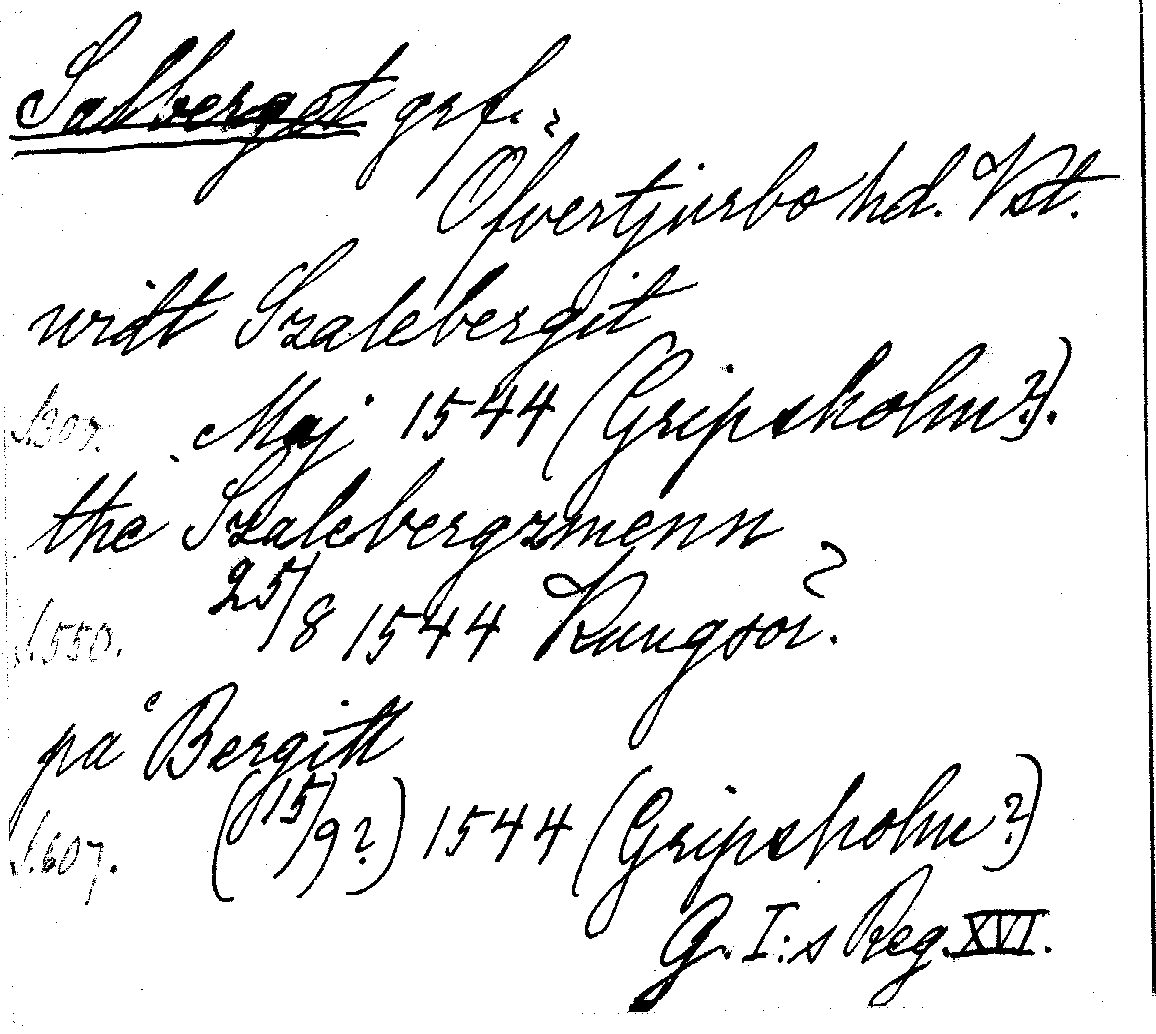 Salberget grf.
Öfvertjurbo hd. Vst.
widt Szalebergit
S.307. Maj 1544 (Gripsholm?).
the Szalebergzmenn
S.550. 25/8 1544 Kungsör.
på Bergitt
S.607. (15/9?) 1544 (Gripsholm?)
G. I:s Reg. XVI.